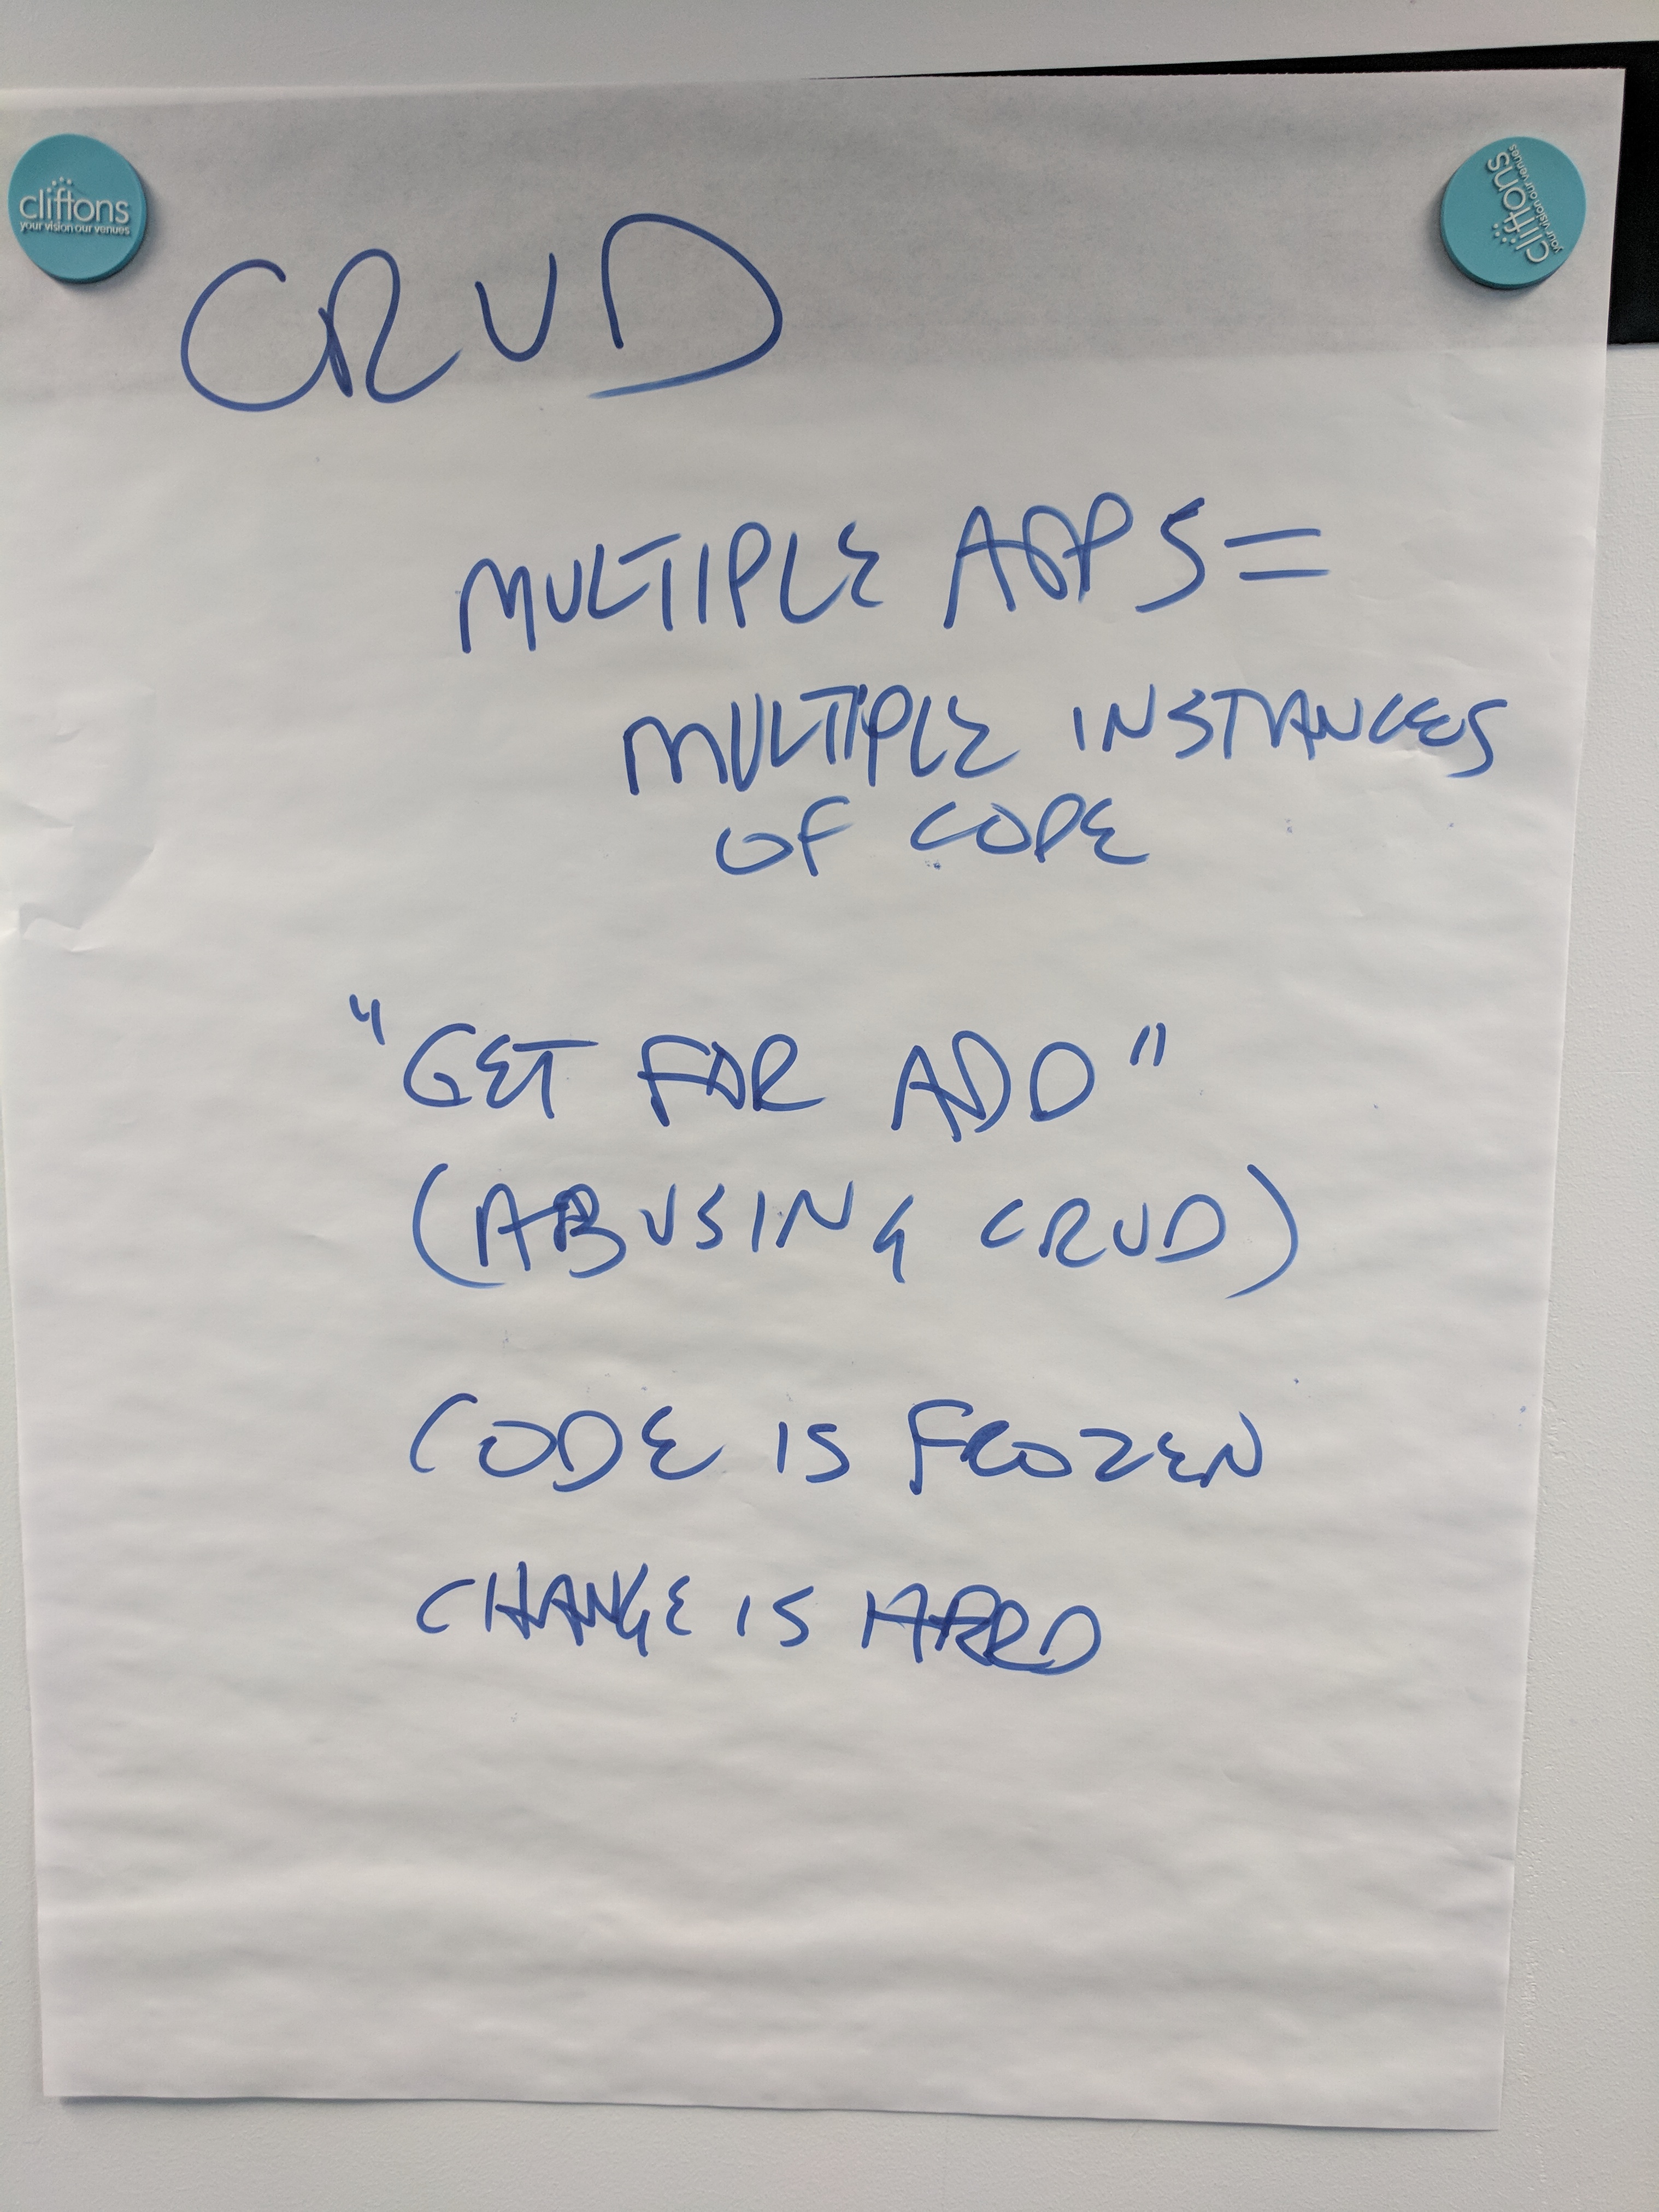 cliftons
your vision our venues
cliftons
your vision our venues
CRUD
MULTIPLE APPS =
MULTIPLE INSTANCES
OF CODE
"GET FOR ADD"
(ABUSING CRUD)
CODE IS FROZEN
CHANGE IS HARD